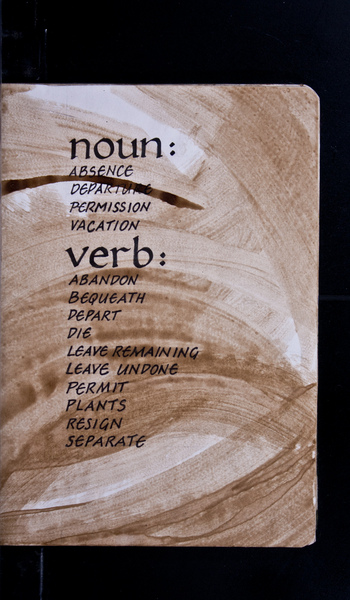 noun:
ABSENCE
DEPARTURE
PERMISSION
VACATION
verb:
ABANDON
BEQUEATH
DEPART
DIE
LEAVE REMAINING
LEAVE UNDONE
PERMIT
PLANTS
RESIGN
SEPARATE